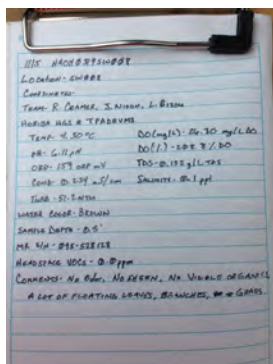 11/5
LOCATION- SW008
COORDINATES-
TEAM- R. CRAMER, S. NIXON, L.
HORIBA
TEMP- °C
DO (mg/L)- mg/L DO
PH- 6.11 pH
DO (%)- % DO
ORP- 159 ORP mV
TDS- 0.152 g/L TDS
COND- 0.234 mS/cm
SALINITY- 0.1 ppt
TURB- 51.2 NTU
WATER COLOR- BROWN
SAMPLE DEPTH- 0.5'
MR S/N- 095-528128
HEADSPACE VOCS- 0.0 ppm
COMMENTS- NO ODOR, NO SHEEN, NO VISIBLE ORGANICS
A LOT OF FLOATING LEAVES, BRANCHES, GRASS